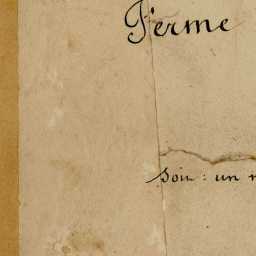 Ferme
Soit : un